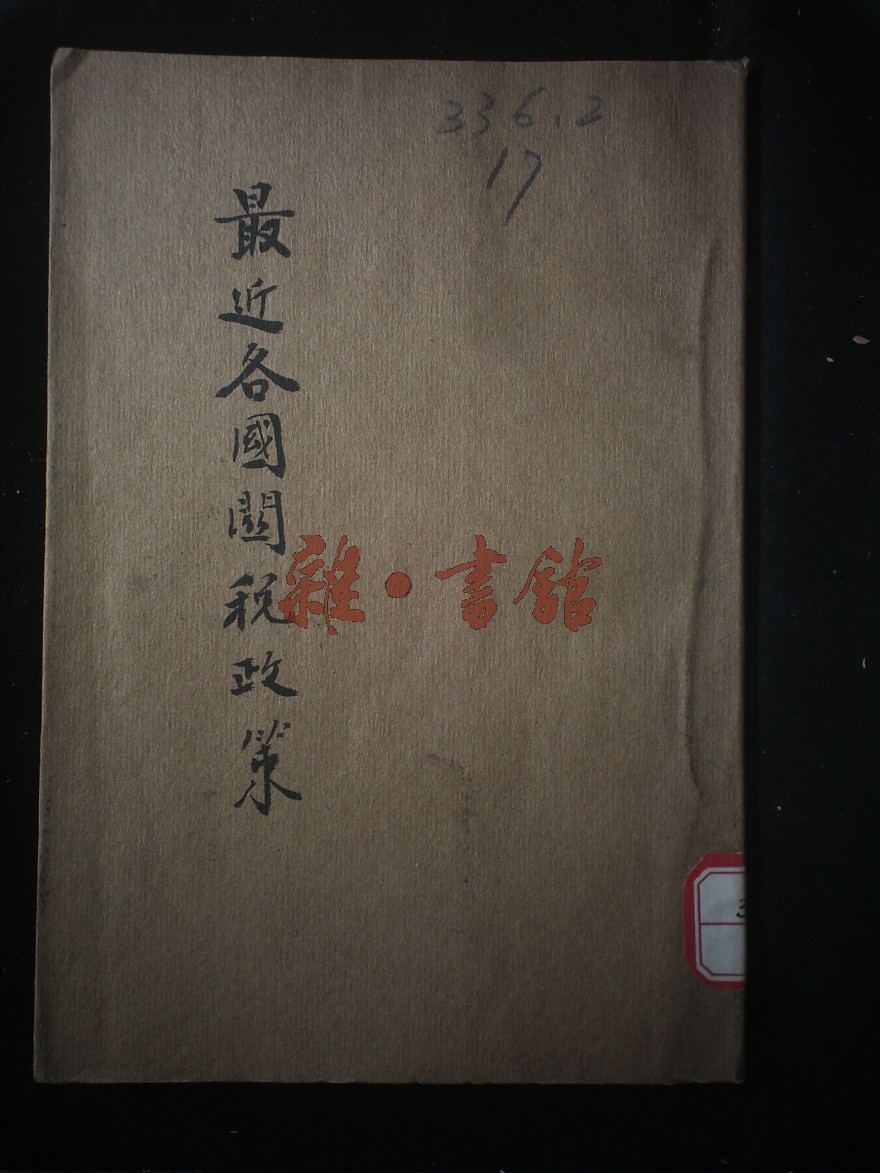 336.2
17
最近各國關稅政策
雜·書館
3